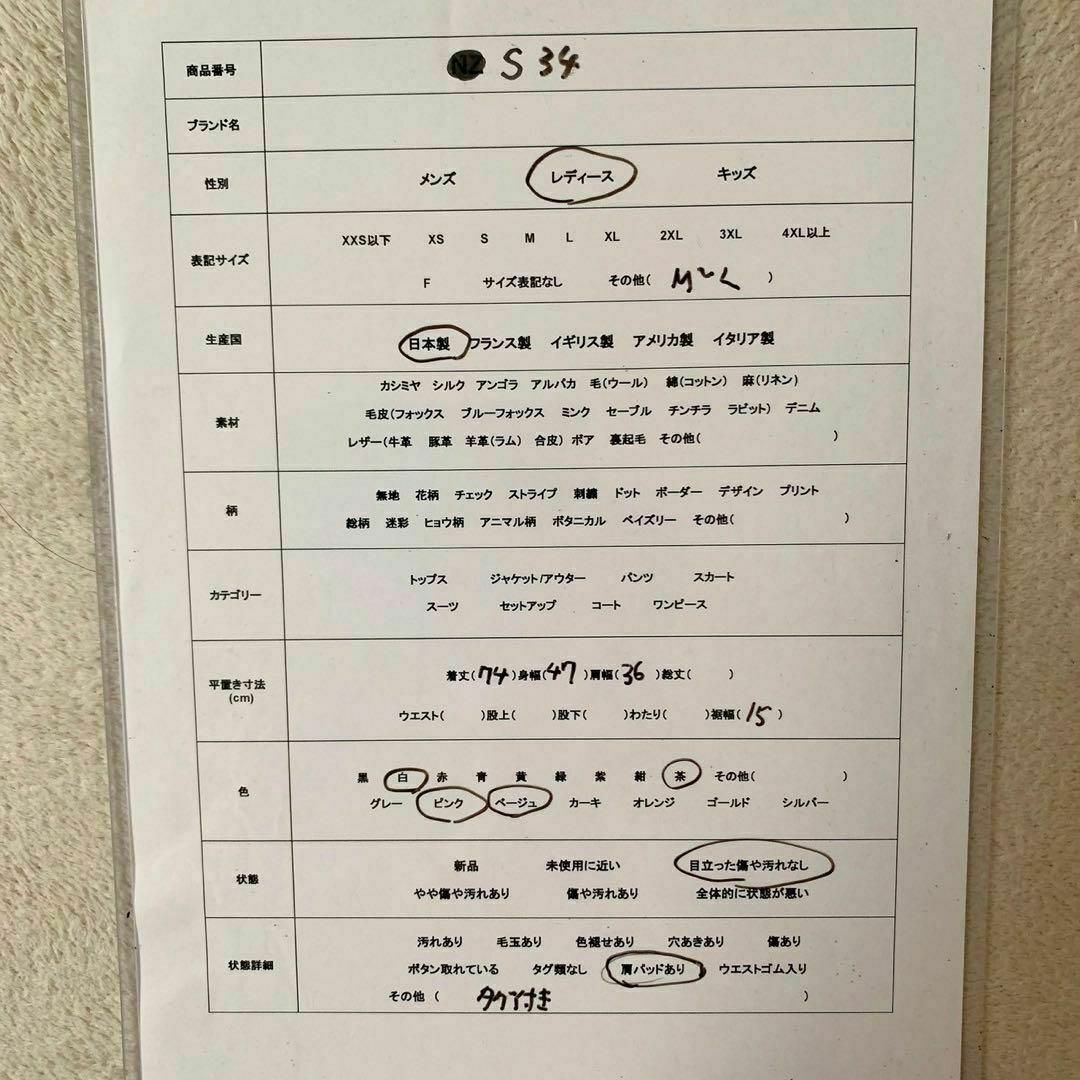 商品番号 NZ S 34
ブランド名
性別 メンズ レディース キッズ
表記サイズ
XXS以下 XS S M L XL 2XL 3XL 4XL以上
F サイズ表記なし その他( M~L )
生産国 日本製 フランス製 イギリス製 アメリカ製 イタリア製
素材
カシミヤ シルク アンゴラ アルパカ 毛(ウール) 綿(コットン) 麻(リネン)
毛皮(フォックス ブルーフォックス ミンク セーブル チンチラ ラビット) デニム
レザー(牛革 豚革 羊革(ラム) 合皮) ボア 裏起毛 その他( )
柄
無地 花柄 チェック ストライプ 刺繍 ドット ボーダー デザイン プリント
総柄 迷彩 ヒョウ柄 アニマル柄 ボタニカル ペイズリー その他( )
カテゴリー
トップス ジャケット/アウター パンツ スカート
スーツ セットアップ コート ワンピース
平置き寸法
(cm)
着丈(74)身幅(47)肩幅(36)総丈( )
ウエスト( )股上( )股下( )わたり( )裾幅(15)
色
黒 白 赤 青 黄 緑 紫 紺 茶 その他( )
グレー ピンク ベージュ カーキ オレンジ ゴールド シルバー
状態
新品 未使用に近い 目立った傷や汚れなし
やや傷や汚れあり 傷や汚れあり 全体的に状態が悪い
状態詳細
汚れあり 毛玉あり 色褪せあり 穴あきあり 傷あり
ボタン取れている タグ類なし 肩パッドあり ウエストゴム入り
その他 ( タグ付き )